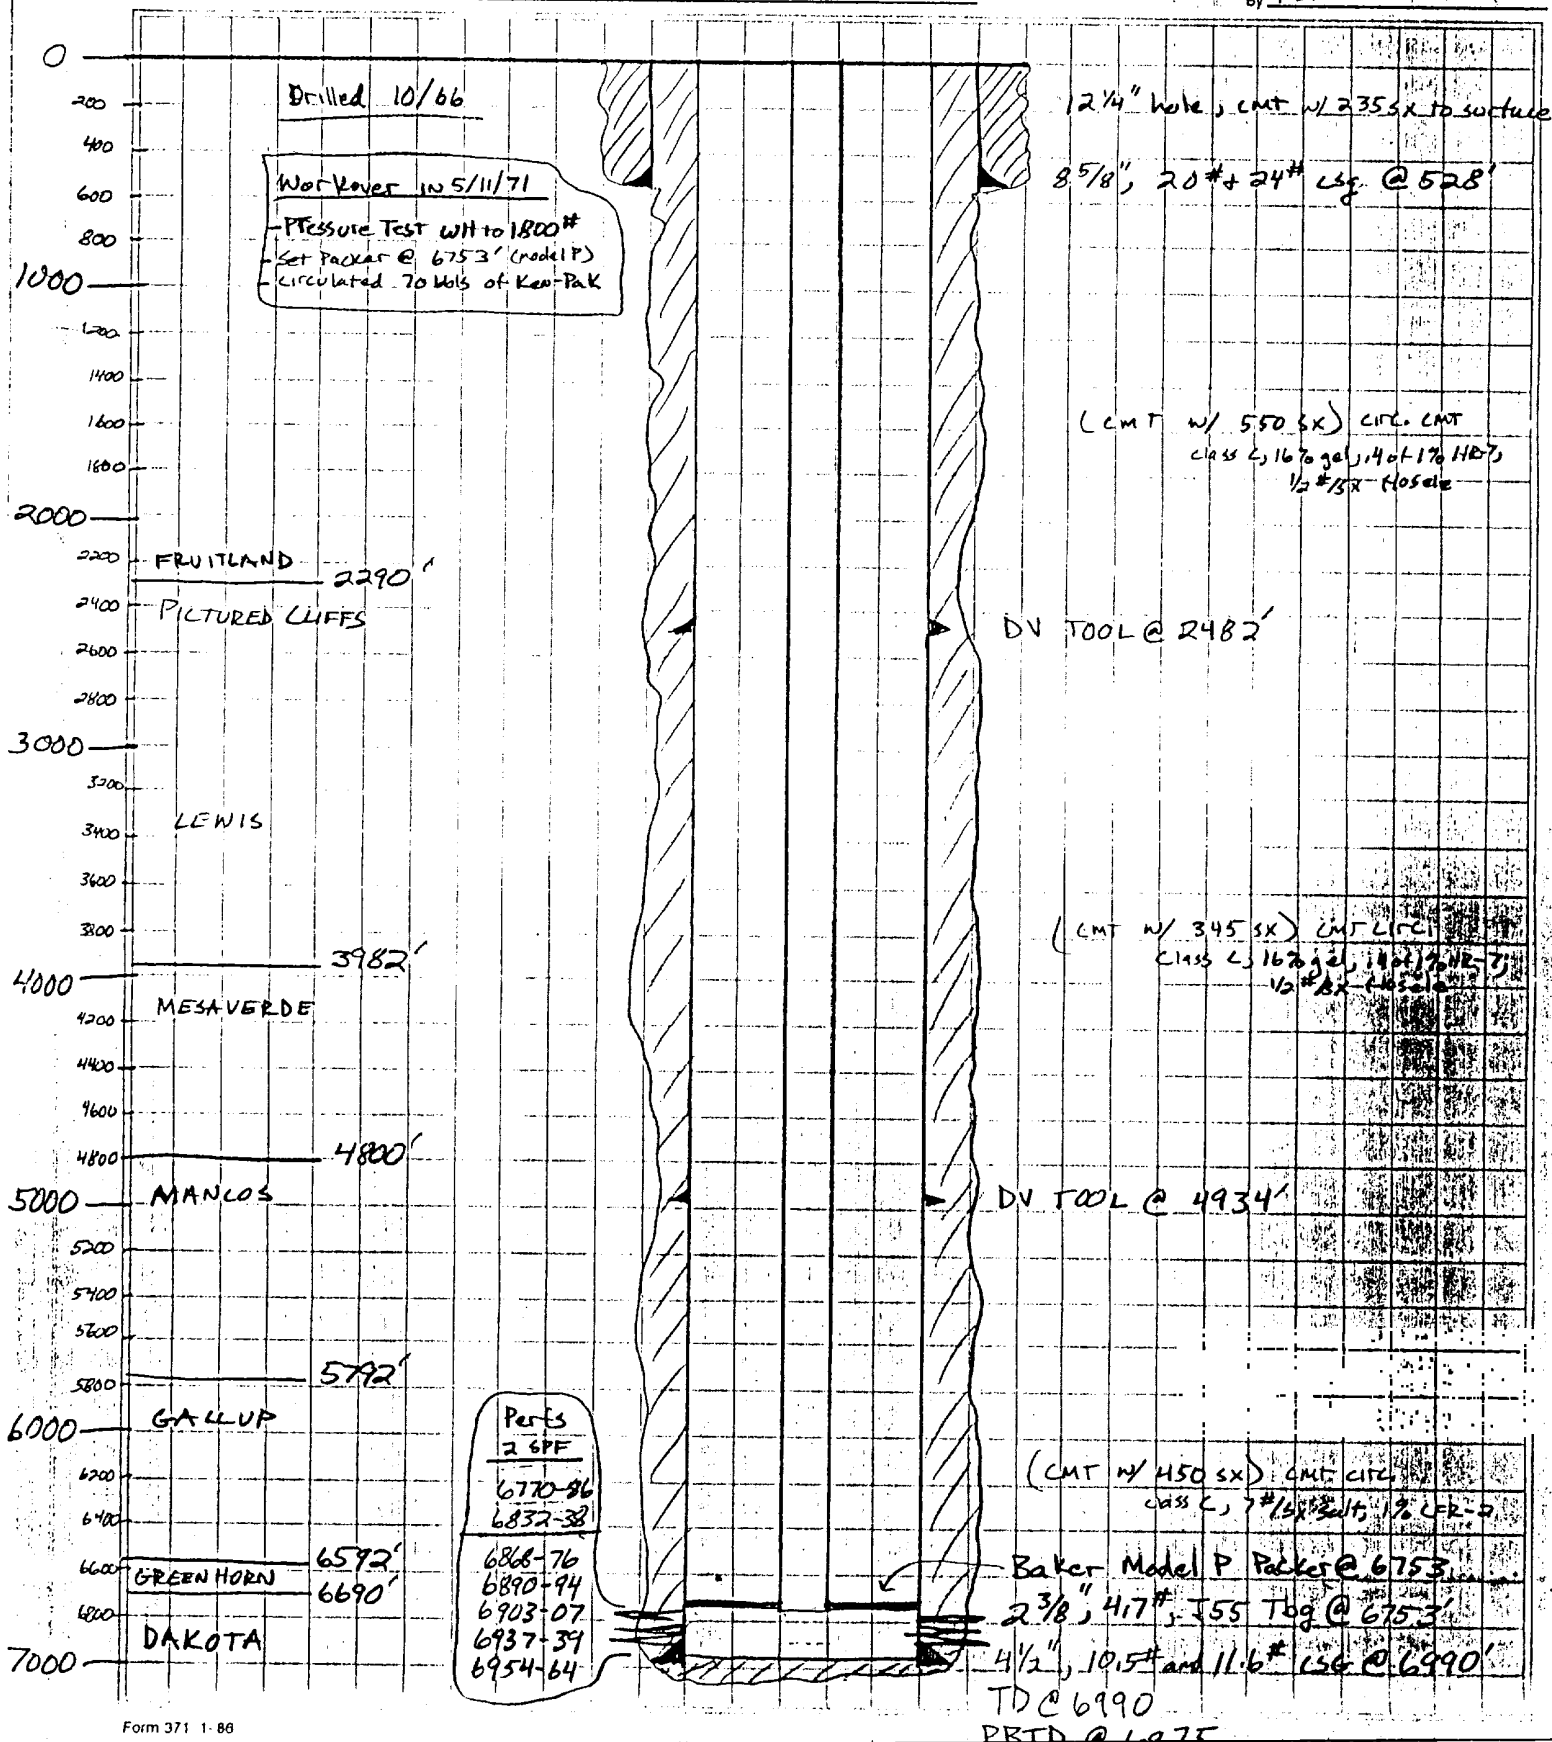 by
0
200
400
600
800
1000
1200
1400
1600
1800
2000
2200
2400
2600
2800
3000
3200
3400
3600
3800
4000
4200
4400
4600
4800
5000
5200
5400
5600
5800
6000
6200
6400
6600
6800
7000
Drilled 10/66
Workover in 5/11/71
- Pressure Test WH to 1800#
- Set Packer @ 6753' (model P)
- circulated 70 bbls of Ken-Pak
FRUITLAND
2290'
PICTURED CLIFFS
LEWIS
3982'
MESAVERDE
4800'
MANCOS
5792'
GALLUP
6592'
GREENHORN
6690'
DAKOTA
Perfs
2 SPF
6770-86
6832-38
6868-76
6890-94
6903-07
6937-39
6954-64
12 1/4" hole, cmt w/ 235 sx to surface
8 5/8", 20# + 24# csg. @ 528'
(CMT w/ 550 sx) circ. cmt
class C, 16% gel, .4 of 1% HR-7,
1/2 #/sx flosele
DV TOOL @ 2482'
(CMT w/ 345 sx) cmt circ.
class C, 16% gel, .4 of 1% HR-7,
1/2 #/sx flosele
DV TOOL @ 4934'
(CMT w/ 450 sx) cmt circ.
class C, 7#/sx salt, 1% CFR-2
Baker Model P Packer @ 6753
2 3/8", 4.7#, J55 Tbg @ 6753'
4 1/2", 10.5# and 11.6# CSG @ 6990'
TD @ 6990
PBTD @ 6975
Form 371 1-86